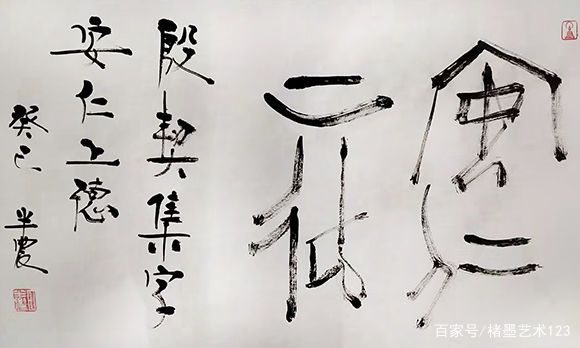 安仁
上德
殷契集字
安仁上德
癸巳
百家号/楮墨艺术123